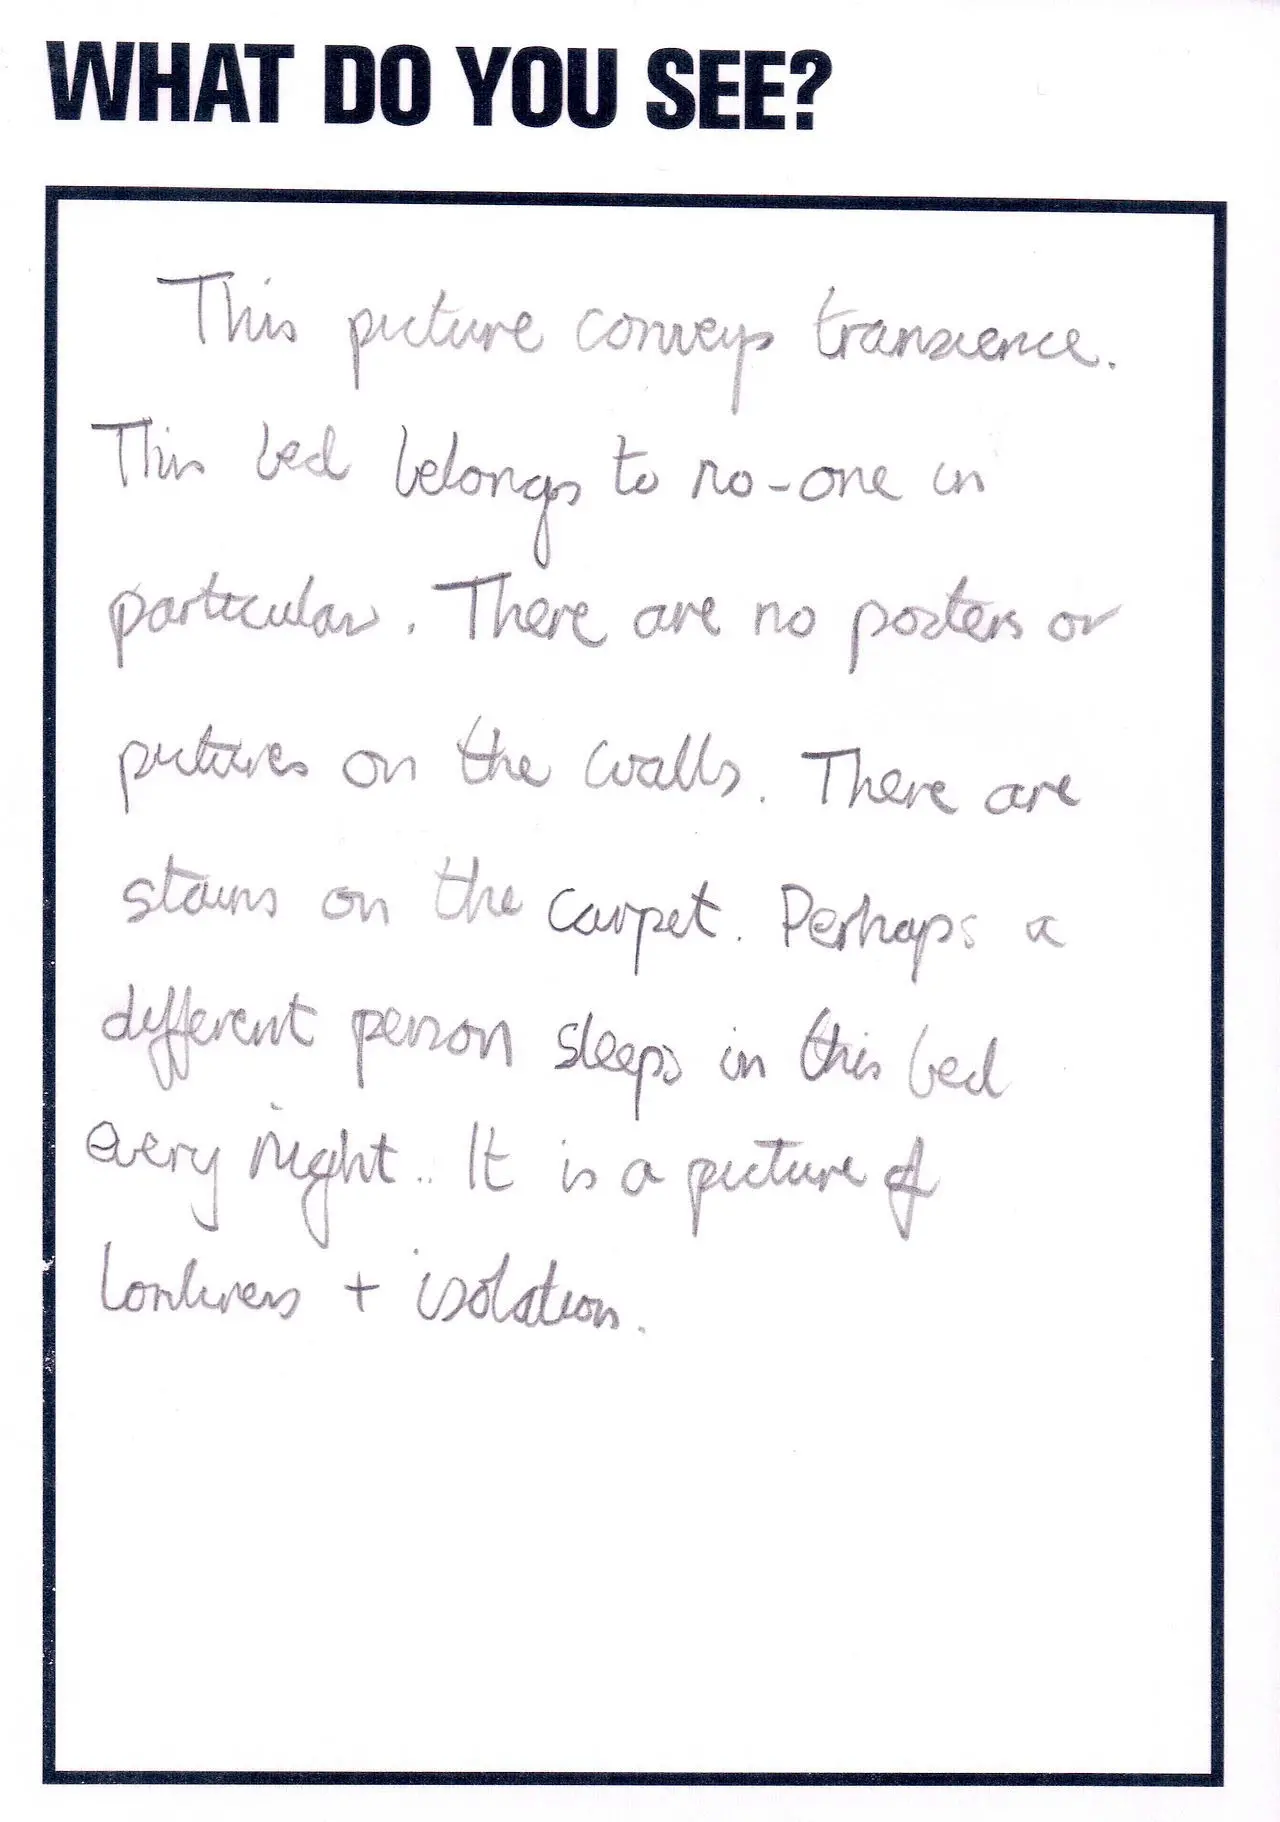 WHAT DO YOU SEE?
This picture conveys transience.
This bed belongs to no-one in
particular. There are no posters or
pictures on the walls. There are
stains on the carpet. Perhaps a
different person sleeps in this bed
every night.. It is a picture of
Lonliness + isolation.